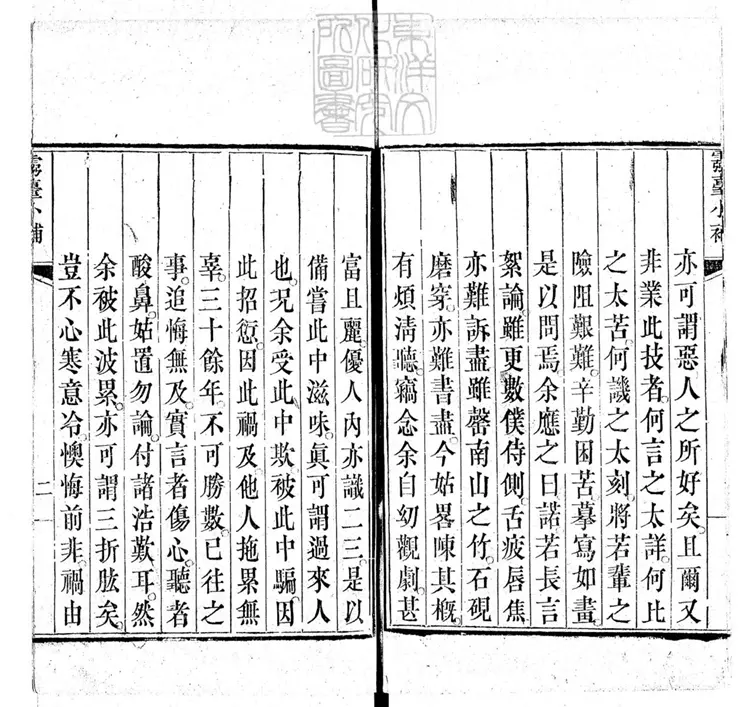 亦可謂惡人之所好矣。且爾又
非業此技者。何言之太詳。何比
之太苦。何譏之太刻。將若輩之
險阻艱難。辛勤困苦。摹寫如畫。
是以問焉。余應之曰。諾。若長言
絮論。雖更數僕侍側。舌疲唇焦。
亦難訴盡。雖罄南山之竹。石硯
磨穿。亦難書盡。今姑畧陳其概。
有煩清聽。竊念余自幼觀劇。甚
靈臺小補
富且麗。優人內亦識二三。是以
備嘗此中滋味。眞可謂過來人
也。况余受此中欺。被此中騙。因
此招愆。因此禍及他人。拖累無
辜。三十餘年。不可勝數。已往之
事。追悔無及。實言者傷心。聽者
酸鼻。姑置勿論。付諸浩歎耳。然
余被此波累。亦可謂三折肱矣。
豈不心寒意冷。懊悔前非。禍由
靈臺小補
二